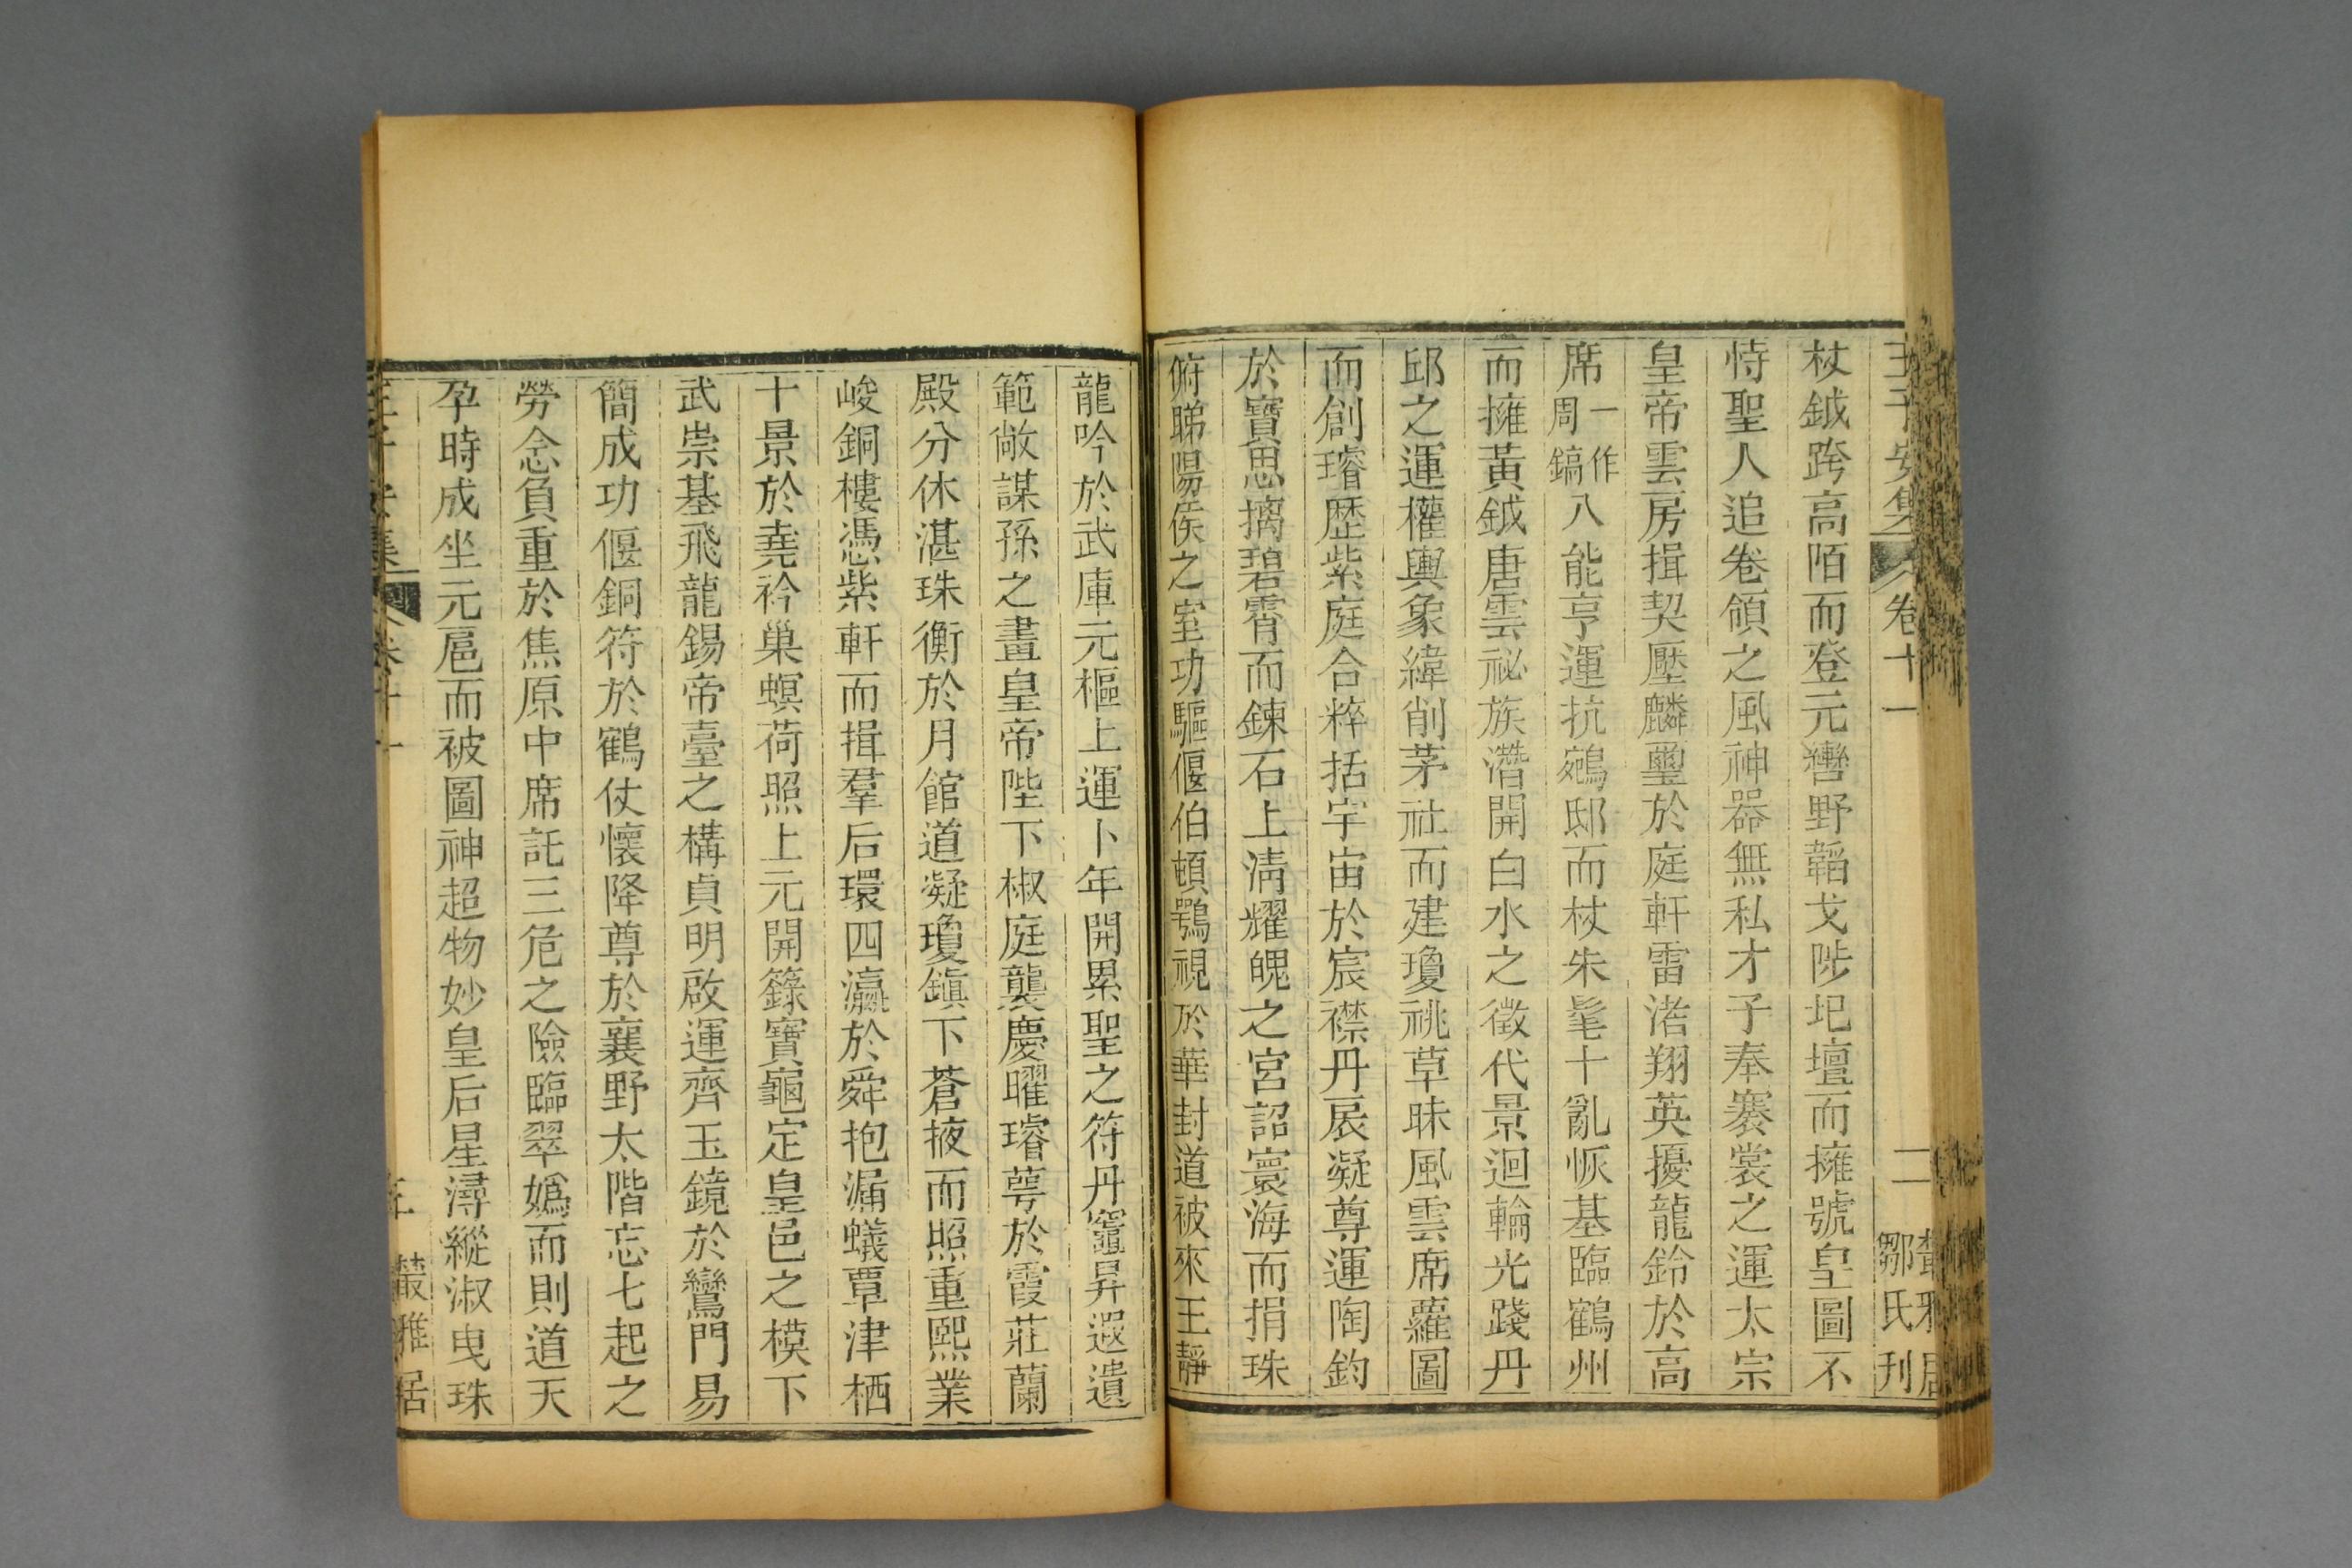 王子安集 卷十一 二 叢雅居
鄒氏刊
杖鉞跨高陌而登元轡野韜戈陟圯壇而擁號皇圖不
恃聖人追卷領之風神器無私才子奉褰裳之運太宗
皇帝雲房揖契壓麟璽於庭軒雷渚翔英擾龍鈴於高
席一作周鎬八能亨運抗鵷邸而杖朱髦十亂恢基臨鶴州
而擁黃鉞唐雲祕族潛開白水之徵代景迴輪光踐丹
邱之運權輿象緯削茅社而建瓊祧草昧風雲席蘿圖
而創璿歷紫庭合粹括宇宙於宸襟丹扆凝尊運陶鈞
於寶思摛碧霄而鍊石上淸耀魄之宮詔寰海而捐珠
俯睇陽侯之室功驅偃伯頓鶚視於華封道被來王靜
龍吟於武庫元樞上運卜年開累聖之符丹竈昇遐遺
範敞謀孫之畫皇帝陛下椒庭襲慶曜璿萼於霞莊蘭
殿分休湛珠衡於月館道凝瓊鎮下蒼掖而照重熙業
峻銅樓憑紫軒而揖羣后環四瀛於舜抱漏蟻覃津栖
十景於堯衿巢螟荷照上元開籙寶龜定皇邑之模下
武崇基飛龍錫帝臺之構貞明啟運齊玉鏡於鸞門易
簡成功偃銅符於鶴仗懷降尊於襄野太階忘七起之
勞念負重於焦原中席託三危之險臨翠嬀而則道天
孕時成坐元扈而被圖神超物妙皇后星潯縱淑曳珠
王子安集 卷十一 三 叢雅居